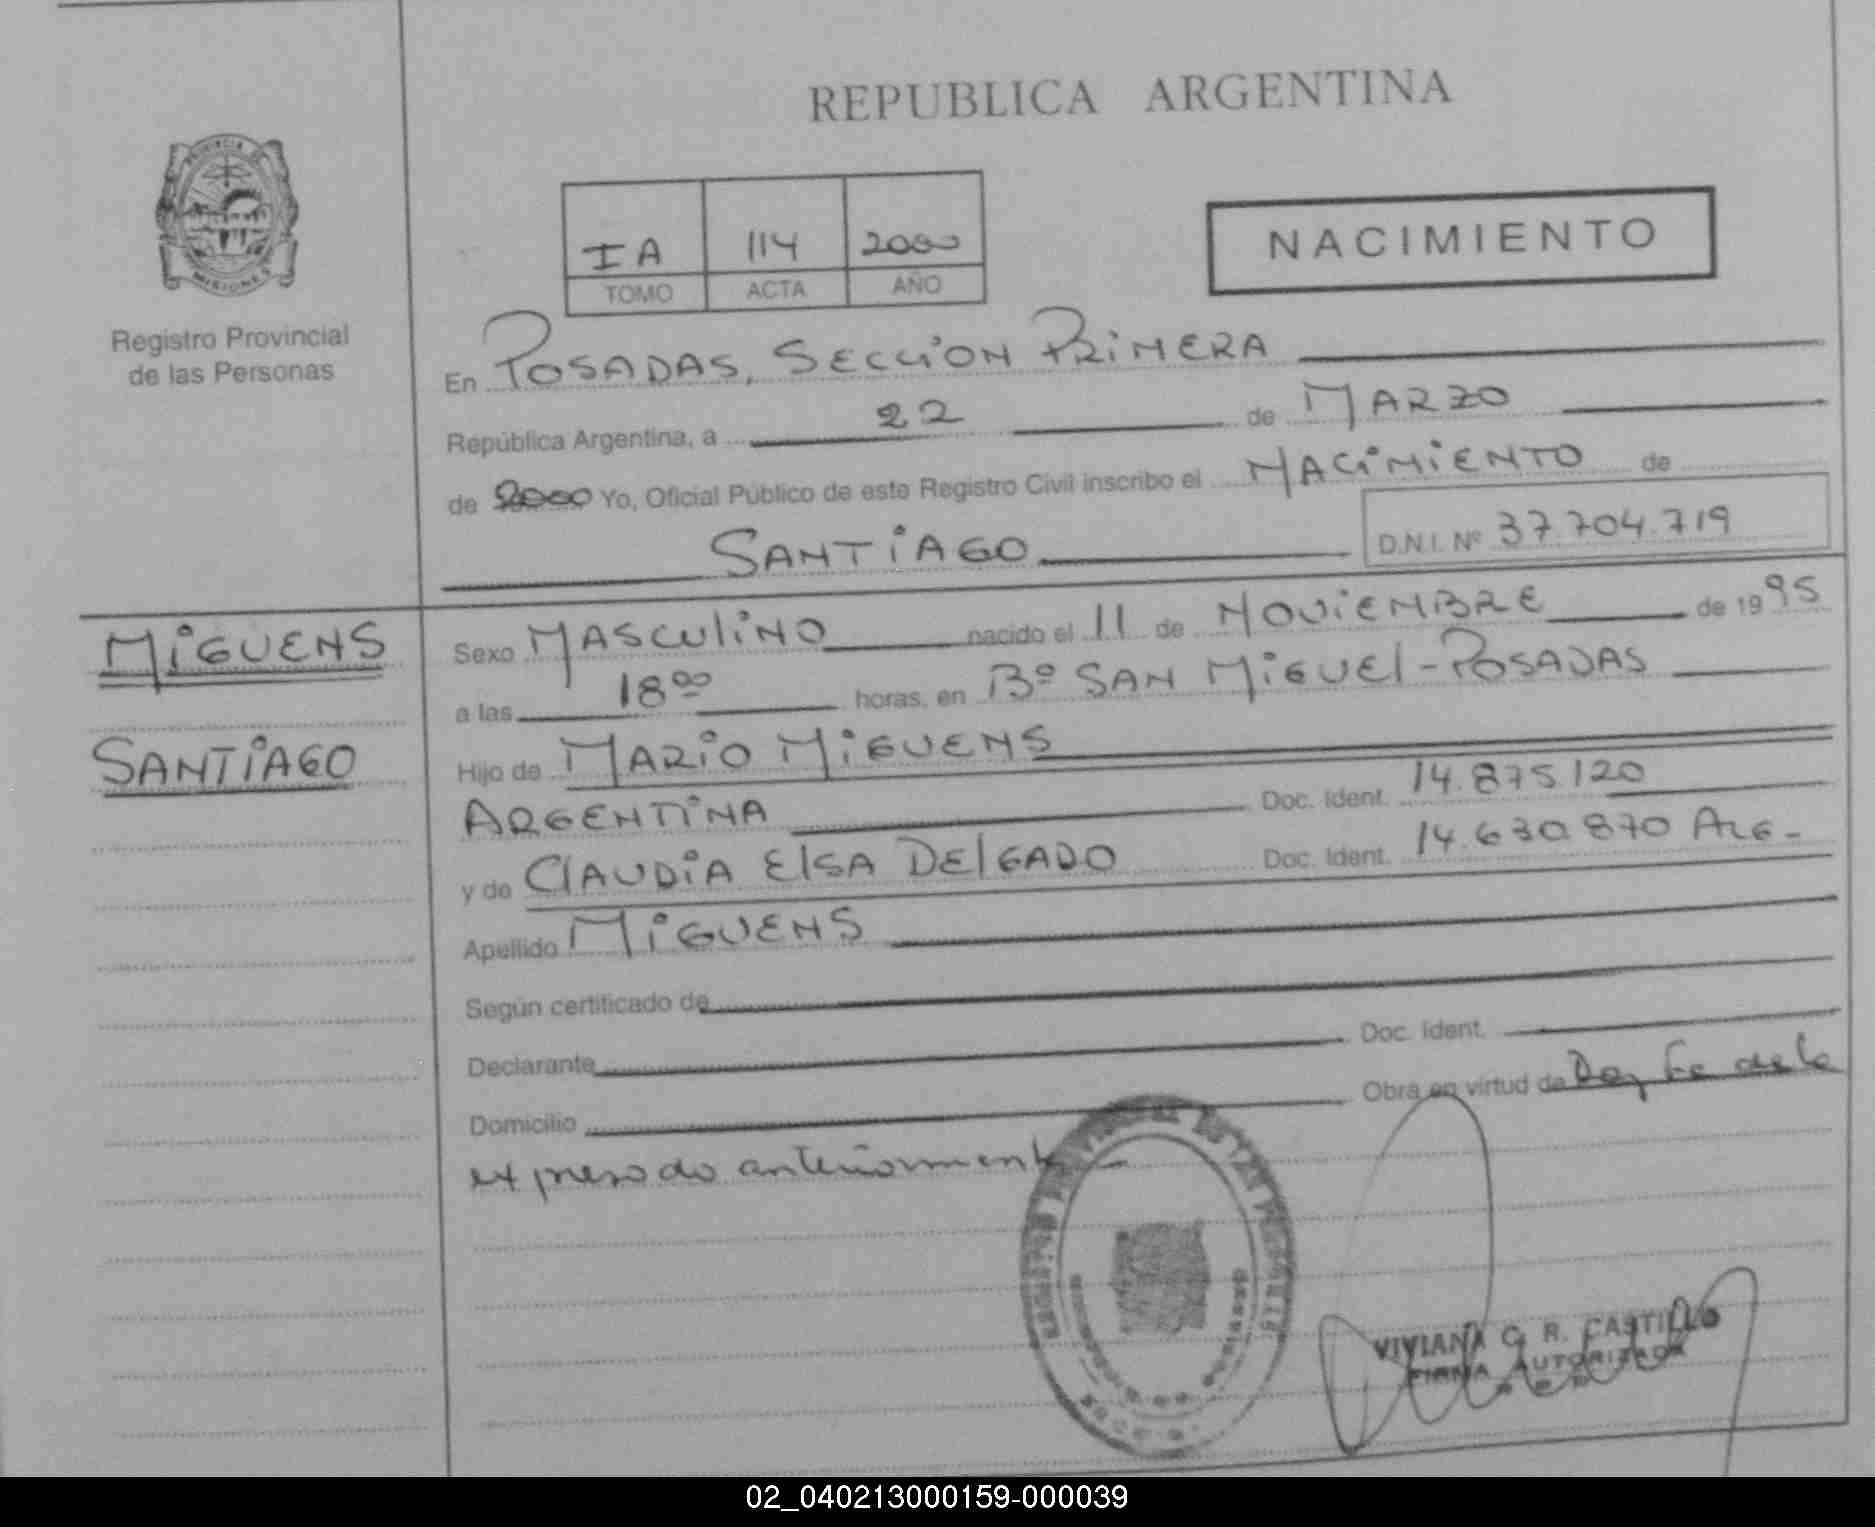 REPUBLICA ARGENTINA
PROVINCIA DE
MISIONES
Registro Provincial
de las Personas
IA 114 2000
TOMO ACTA AÑO
NACIMIENTO
En POSADAS, SECCION PRIMERA
República Argentina, a 22 de MARZO
de 2000 Yo, Oficial Público de este Registro Civil inscribo el NACIMIENTO de
SANTIAGO D.N.I. Nº 37.704.719
MIGUENS
SANTIAGO
Sexo MASCULINO nacido el 11 de NOVIEMBRE de 1995
a las 18 00 horas, en Bº SAN MIGUEL - POSADAS
Hijo de MARIO MIGUENS
ARGENTINA Doc. Ident. 14.875.120
y de CLAUDIA ELSA DELGADO Doc. Ident. 14.630.870 ARG-
Apellido MIGUENS
Según certificado de
Declarante Doc. Ident.
Domicilio Obra en virtud de Doy fe de lo
expresado anteriormente
VIVIANA G. R. CASTILLO
FIRMA AUTORIZADA
02_040213000159-000039